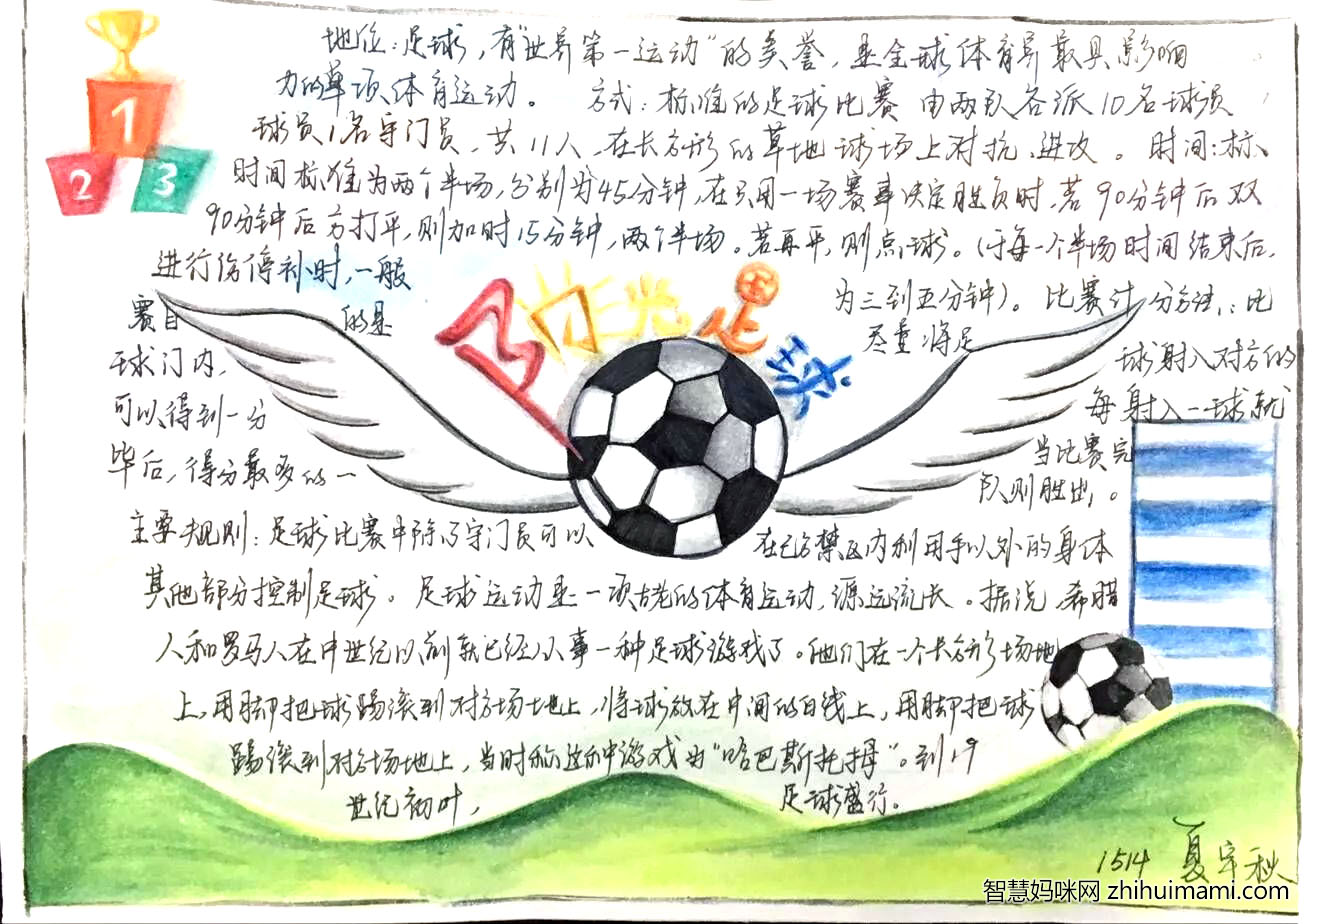 1
2
3
地位：足球，有"世界第一运动"的美誉，是全球体育界最具影响
力的单项体育运动。 方式：标准的足球比赛 由两队各派10名球员
球员1名守门员，共11人，在长方形的草地球场上对抗、进攻。 时间：标、
时间标准为两个半场，分别为45分钟，在只用一场赛事决定胜负时，若90分钟后双
90分钟后方打平，则加时15分钟，两个半场。若再平，则点球。（于每一个半场时间结束后，
进行伤停补时，一般 为三到五分钟）。 比赛计分方法：比
赛目 的是 尽量将足
阳光足球
球门内， 球射入对方的
可以得到一分 每射入一球就
毕后，得分最多的一 当比赛完
队则胜出。
主要规则：足球比赛中除了守门员可以 在己方禁区内利用手以外的身体
其他部分控制足球。 足球运动是一项古老的体育运动，源远流长。据说，希腊
人和罗马人在中世纪以前就已经从事一种足球游戏了。他们在一个长方形场地
上，用脚把球踢滚到对方场地上，将球放在中间的白线上，用脚把球
踢滚到对方场地上，当时称这种游戏为"哈巴斯托姆"。到19
世纪初叶， 足球盛行。
1514 夏 秋
智慧妈咪网 zhihuimami.com